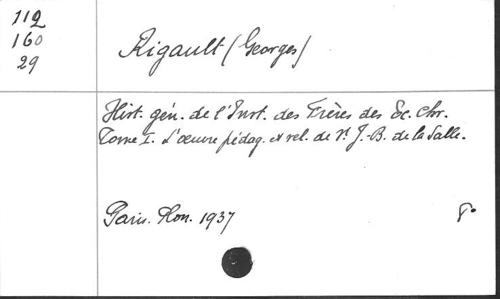 112
160
29
Rigault (Georges)
Hist. gén. de l'Inst. des Frères des Ec. Chr.
Tome I. L'œuvre pédag. et rel. de St J.-B. de la Salle.
Paris. Plon. 1937
8°